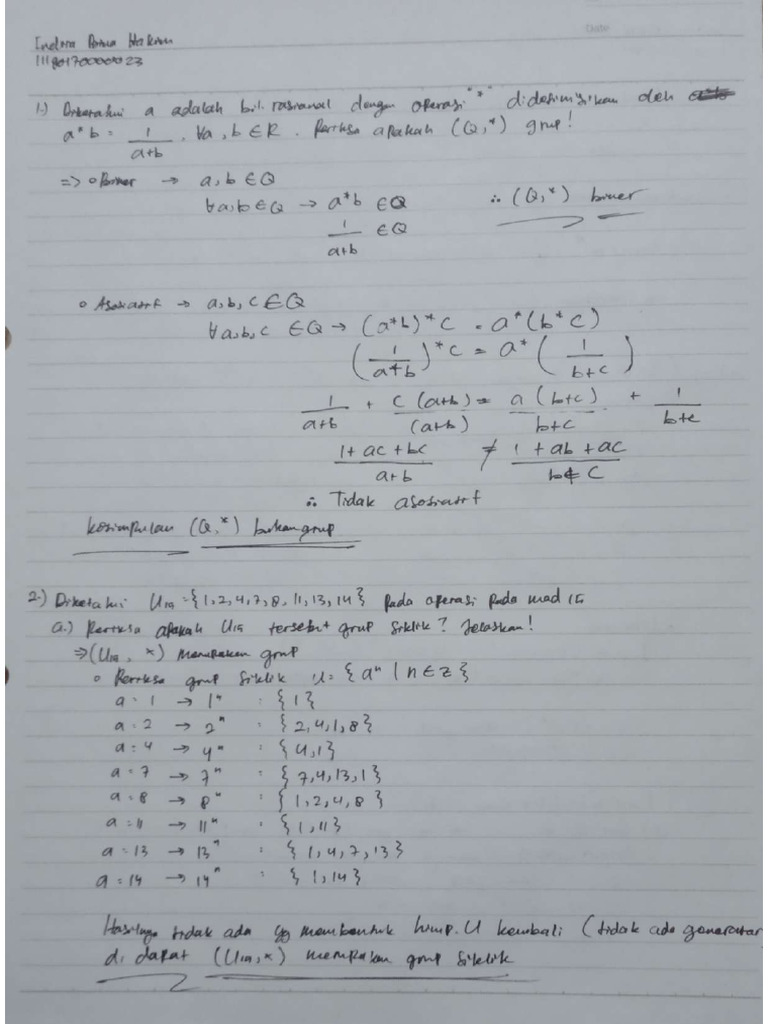 Date
Indira Bima Hakim
11180170000023
1.) Diketahui a adalah bil. rasional dengan operasi "*" didefinisikan oleh
a*b = 1/(a+b), ∀a, b ∈ R. Periksa apakah (Q,*) grup!
=> ○ Biner → a, b ∈ Q
∀a,b ∈ Q → a*b ∈ Q ∴ (Q,*) biner
1/(a+b) ∈ Q
○ Asosiatif → a, b, c ∈ Q
∀a,b,c ∈ Q → (a*b)*c = a*(b*c)
(1/(a+b))*c = a*(1/(b+c))
1/(a+b) + c(a+b)/(a+b) = a(b+c)/(b+c) + 1/(b+c)
(1+ac+bc)/(a+b) ≠ (1+ab+ac)/(b+c)
∴ Tidak asosiatif
Kesimpulan (Q,*) bukan grup
2.) Diketahui U15 = {1,2,4,7,8,11,13,14} pada operasi pada mod 15
a.) Periksa apakah U15 tersebut grup siklik? Jelaskan!
=> (U15, ×) merupakan grup
○ Periksa grup siklik U = {aⁿ | n ∈ z}
a = 1 → 1ⁿ : {1}
a = 2 → 2ⁿ : {2,4,1,8}
a = 4 → 4ⁿ : {4,1}
a = 7 → 7ⁿ : {7,4,13,1}
a = 8 → 8ⁿ : {1,2,4,8}
a = 11 → 11ⁿ : {1,11}
a = 13 → 13ⁿ : {1,4,7,13}
a = 14 → 14ⁿ : {1,14}
Hasilnya tidak ada yg membentuk himp. U kembali (tidak ada generator
di dapat (U15,×) merupakan grup siklik